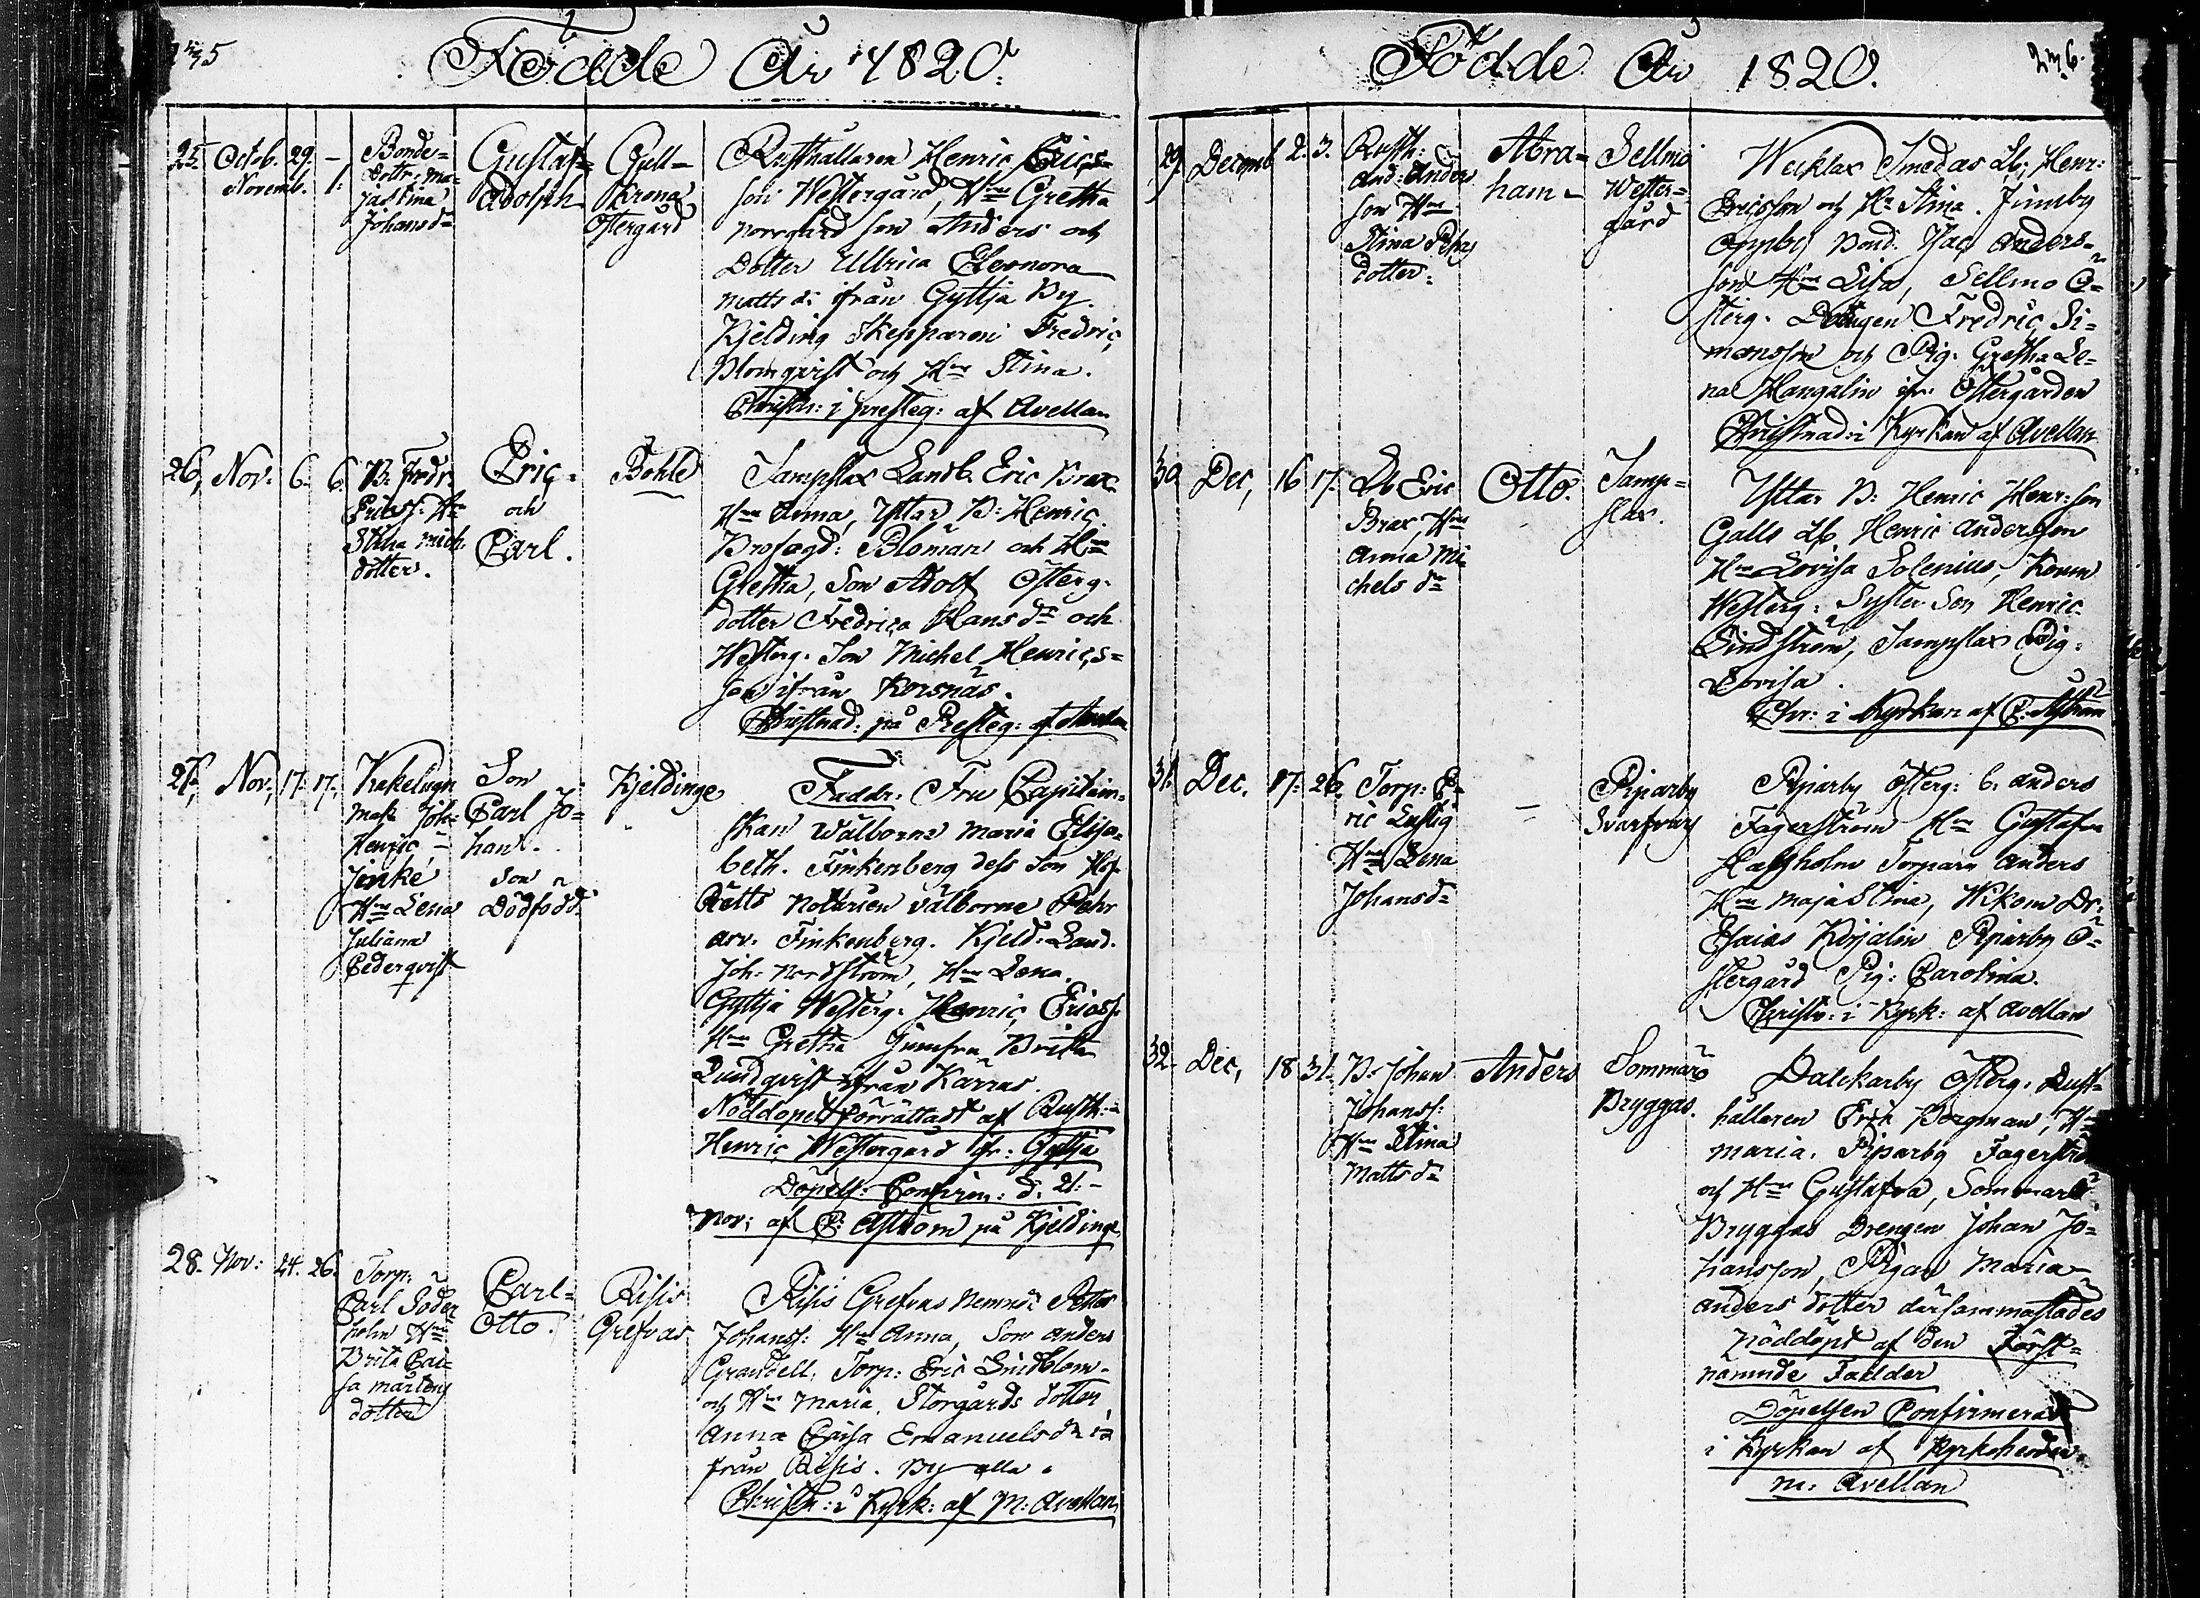 Födde År 1820.
25. Octob. 29. –
Novemb. 1.
Bonde=
Dottr: Ma=
ja Stina
Johansdr
Gustaf=
Adolph
Gull=
krona
Östergård
Rusthållaren Henric Erics=
son Westergård, Hu Gretha
Norrgård son Anders och
Dotter Ullrica Eleonora
Matts dr ifrån Gyttja By.
Kjelding Skepparen Fredric
Blomqvist och Hu Stina.
Christn: i Presteg: af Avellan
26. Nov: 6. 6.
B: Fredr:
Ericss: Hu
Stina Mich:
dotter.
Eric
och
Carl.
Bohle
Sampslax Landb. Eric Brax
Hu Anna, Ystar B: Henric
Brofogd: Bloman och Hu
Gretha, Son Adolf Österg.
dotter Fredrica Hans dr och
Westerg. Son Michel Henrics=
son ifrån Korsnäs.
Christnad: på Presteg: af Avellan
27. Nov. 17. 17.
Kakelugn
mak Joh:
Henric
Jenke
Hu Lena
Juliana
Cederqvist
Son
Carl Jo=
han.
Son
Dödfödd.
Kjeldinge
Faddr: Fru Capitain=
skan Wälborna Maria Elisa=
beth. Finkenberg dess Son Hof
Rätts Notarien Välborne Pehr
arv. Finkenberg. Kjeld. Land.
Joh: Nordström, Hu Lena.
Gyttja Westerg. Henric Ericss.
Hu Gretha Jumfru Britta
Lundqvist ifrån Kärras.
Nöddopet förrättadt af Rusth:
Henric Westergård fr: Gyttja
Döpels: Confirm: d. 21.
Nov: af C: Åström på Kjeldinge
28. Nov: 24. 26.
Torp:
Carl Söder
holm Hu
Brita Cai=
sa Mårtens
dotter
Carl=
Otto.
Risis
Grefvas
Risis Grefvas Petter
Johanss: Hu Anna, Son Anders
Grandell, Torp: Eric Lindblom
och Hu Maria, Storgårds dotter
Anna Caisa Emanuels dr i=
från Risis. By alla.
Christn: i Kyrk: af M: Avellan
Födde År 1820.
29. Decemb 2. 3.
Rusth:
And: Anders
son Hu
Stina Pehrs
dotter.
Abra=
ham
Sellmo
Wester=
gård
Wicklax Smedas Lb: Henr:
Ericsson och Hu Stina. Finnby
Bond. Jac Anders=
son Hu Lisa, Sellmo Ö=
sterg. Drängen Fredric Si=
monsson och Pig. Gretha Le=
na Hangelin ifr: Östergården
Christnad: i Kyrkan af Avellan
30 Dec, 16 17.
Lb Eric
Brax, Hu
Anna Mi
chels dr
Otto.
Samp=
slax.
Ystar B: Henric Henr: son
Galls Lb. Henric Andersson
Hu Lovisa Solenius,
Westerg: Syster Son Henric
Lindström, Sampslax Pig.
Lovisa.
Chr: i Kyrkan af C: Åström
31. Dec. 17. 26.
Torp: E=
ric Lustig
Hu Lena
Johansdr
–
Piparby
Svarfvars
Piparby Österg: b. Anders
Fagerström Hu Gustafva
Torparn Anders
Hu Maja Stina, Wikom Dr.
Esaias Piparby Ö=
stergård Pig: Carolina.
Christn: i Kyrk: af Avellan
32. Dec, 18 31.
B: Johan
Johanss:
Hu Stina
Matts dr
Anders
Sommarö
Bryggas.
Dalckarby Österg. Rust=
hållaren Erik Bergman, Hu
Maria. Piparby Fagerström
och Hu Gustafva, Sommarö
Bryggas Drengen Johan Jo=
hansson, Pigan Maria
Anders dotter dersammastädes
Nöddöpt af den Först=
nämnde Fadder
Döpelsen Confirmerad
i Kyrkan af Kyrkoherden
M: Avellan